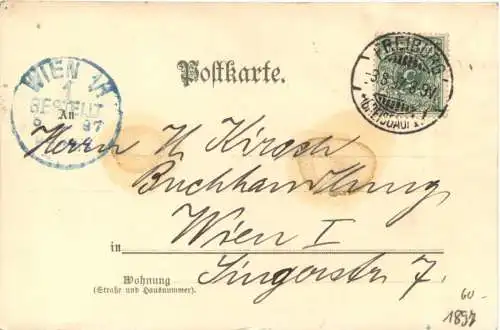 Postkarte.
FREIBURG
WIEN 1/1
1
BESTELLT
97
An
Herrn H Kirsch
Buchhandlung
in Wien I
Singerstr 7.
Wohnung
(Straße und Hausnummer).
1897